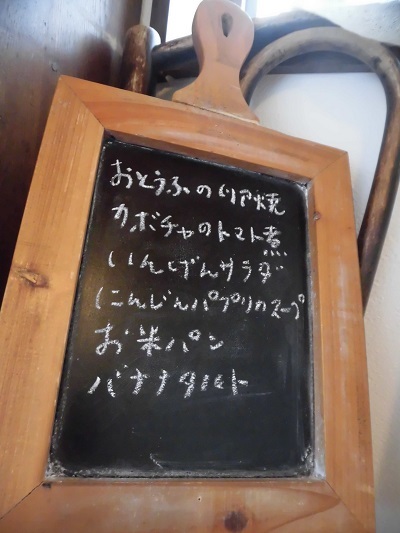 おとうふの竜田焼
カボチャのトマト煮
いんげんサラダ
にんじんパプリカスープ
お米パン
バナナタルト